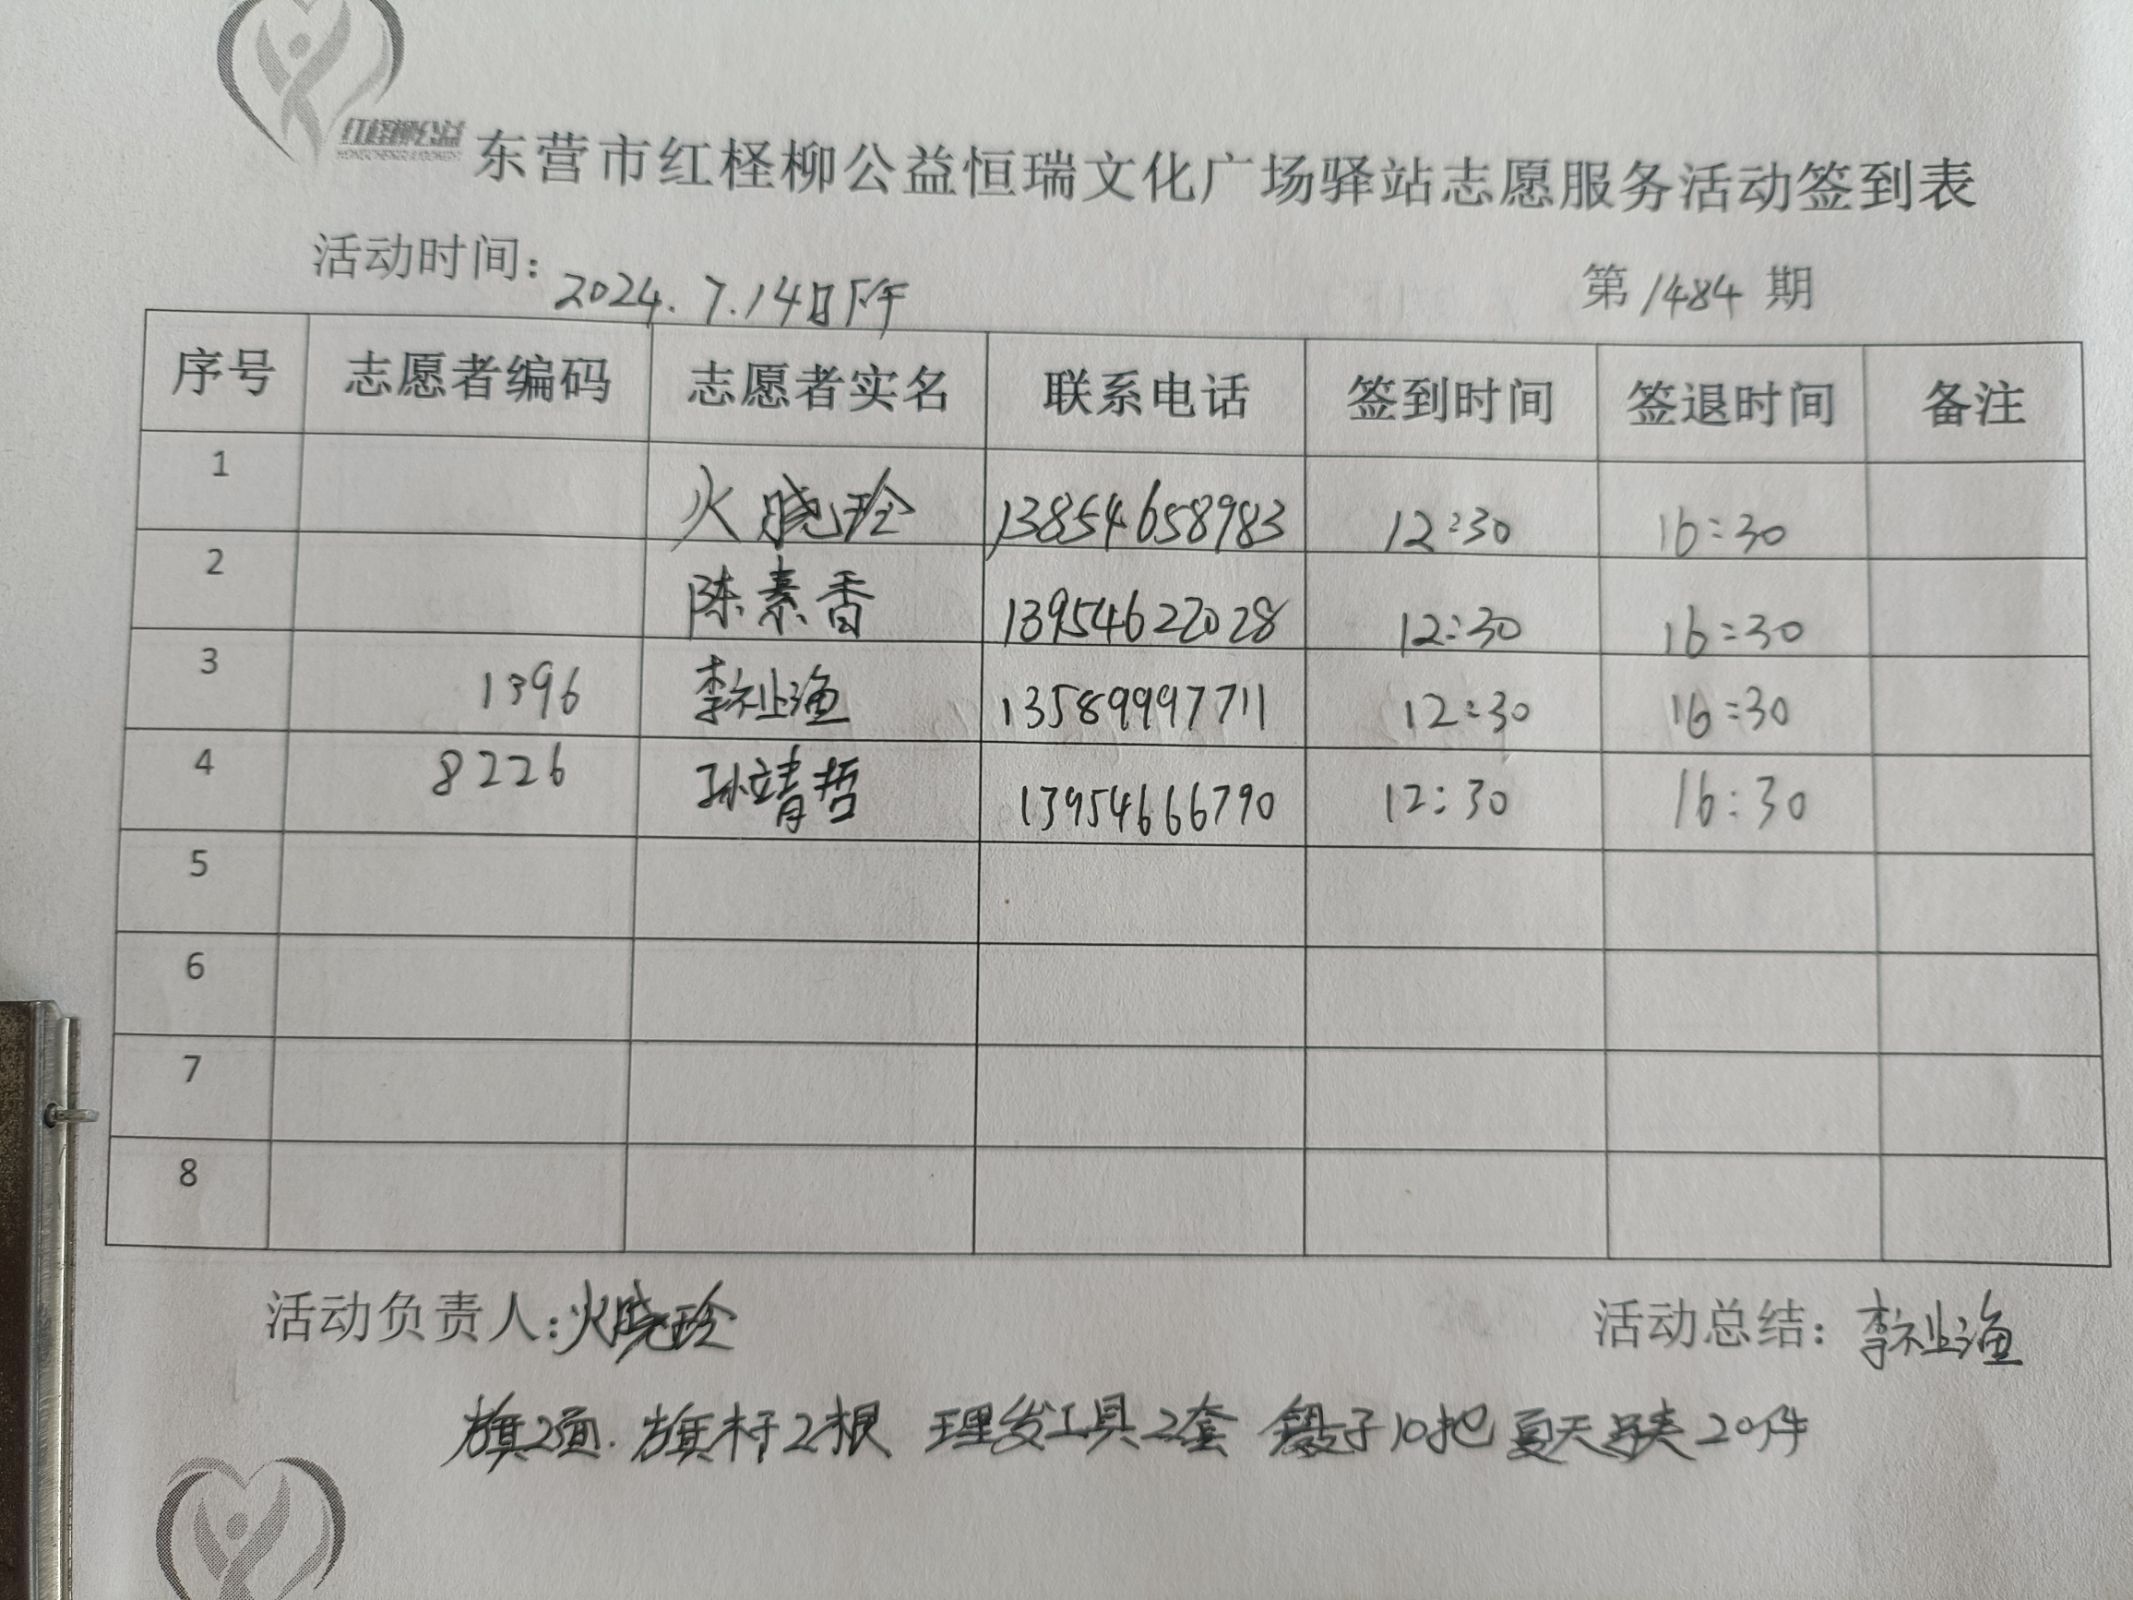 红柽柳公益
东营市红柽柳公益恒瑞文化广场驿站志愿服务活动签到表
活动时间：2024.7.14日下午 第1484期
序号 志愿者编码 志愿者实名 联系电话 签到时间 签退时间 备注
1 火晓玲 13854658983 12:30 16:30
2 陈素香 13954622028 12:30 16:30
3 1396 李祉渔 13589997711 12:30 16:30
4 8226 孙靖哲 13954666790 12:30 16:30
5
6
7
8
活动负责人：火晓玲 活动总结：李祉渔
旗2面. 旗杆2根 理发工具2套 镊子10把 夏天马夹20件